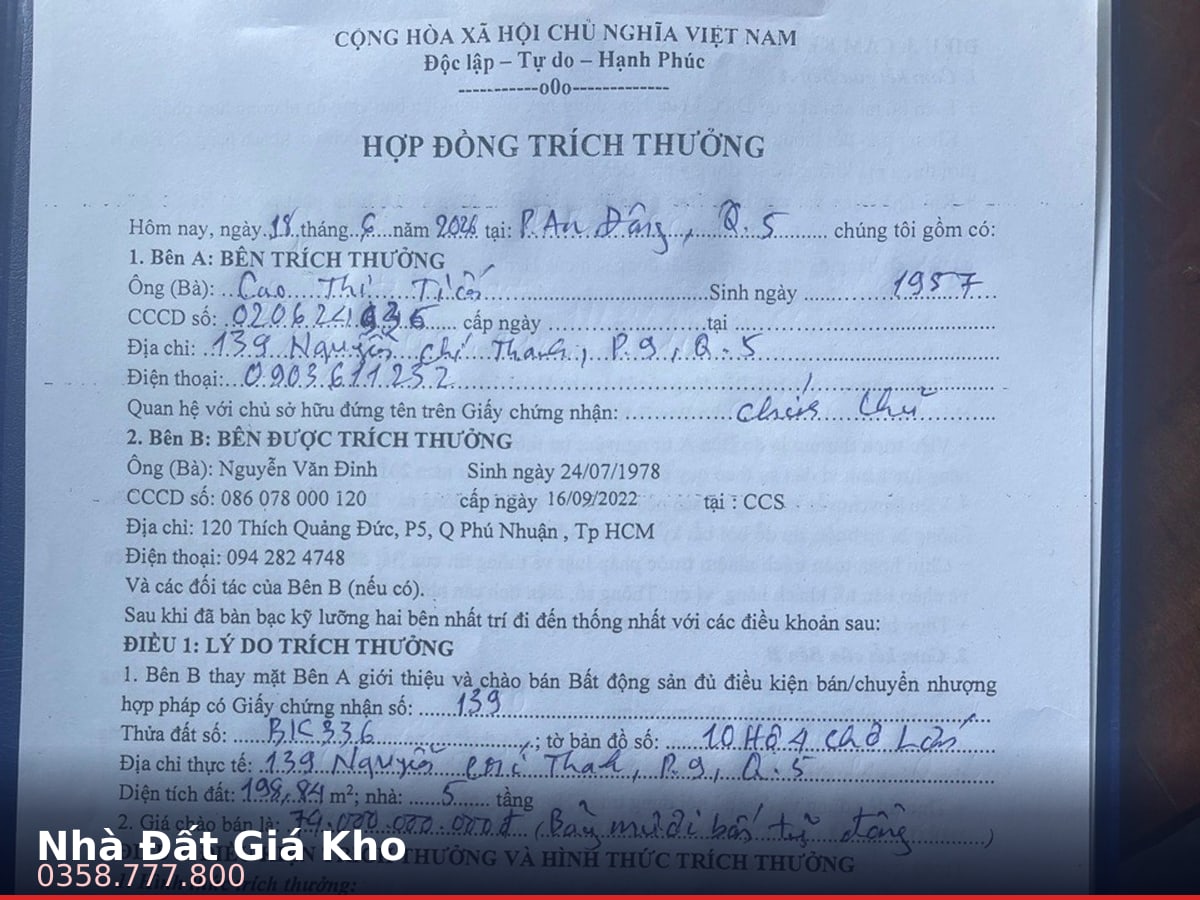 CỘNG HÒA XÃ HỘI CHỦ NGHĨA VIỆT NAM
Độc lập – Tự do – Hạnh Phúc
-----------o0o-------------
HỢP ĐỒNG TRÍCH THƯỞNG
Hôm nay, ngày 18 tháng 6 năm 2026 tại: P. An Đông, Q. 5 chúng tôi gồm có:
1. Bên A: BÊN TRÍCH THƯỞNG
Ông (Bà): Cao Thị Sinh ngày 1957
CCCD số: cấp ngày tại
Địa chỉ: 139 Nguyễn Chí Thanh, P.9, Q.5
Điện thoại: 0903611232
Quan hệ với chủ sở hữu đứng tên trên Giấy chứng nhận: chính chủ
2. Bên B: BÊN ĐƯỢC TRÍCH THƯỞNG
Ông (Bà): Nguyễn Văn Đỉnh Sinh ngày 24/07/1978
CCCD số: 086 078 000 120 cấp ngày 16/09/2022 tại : CCS
Địa chỉ: 120 Thích Quảng Đức, P5, Q Phú Nhuận , Tp HCM
Điện thoại: 094 282 4748
Và các đối tác của Bên B (nếu có).
Sau khi đã bàn bạc kỹ lưỡng hai bên nhất trí đi đến thống nhất với các điều khoản sau:
ĐIỀU 1: LÝ DO TRÍCH THƯỞNG
1. Bên B thay mặt Bên A giới thiệu và chào bán Bất động sản đủ điều kiện bán/chuyển nhượng
hợp pháp có Giấy chứng nhận số: 139
Thửa đất số: BK336 ; tờ bản đồ số: 10 Hồ 4 Chợ Lớn
Địa chỉ thực tế: 139 Nguyễn Chí Thanh, P.9, Q.5
Diện tích đất: 198,84 m²; nhà: 5 tầng
2. Giá chào bán là: 74.000.000.000đ (Bảy mươi bốn tỷ đồng)
TRÍCH THƯỞNG VÀ HÌNH THỨC TRÍCH THƯỞNG
trích thưởng:
Nhà Đất Giá Kho
0358.777.800